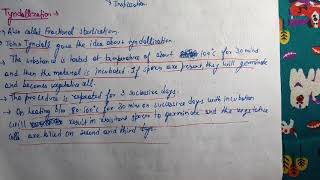 Indication
Tyndallization →
→ Also called Fractional sterilization.
→ John Tyndall gave the idea about tyndallization.
→ The substance is heated at temperature of about 100°C for 30 mins
and then the material is incubated. If spores are present, they will germinate
and becomes vegetative cell.
→ The procedure is repeated for 3 successive days.
→ On heating b/w 80-100°C for 20 mins on successive days with incubation
will result in resistant spores to germinate and the vegetative
cells are killed on second and third day.